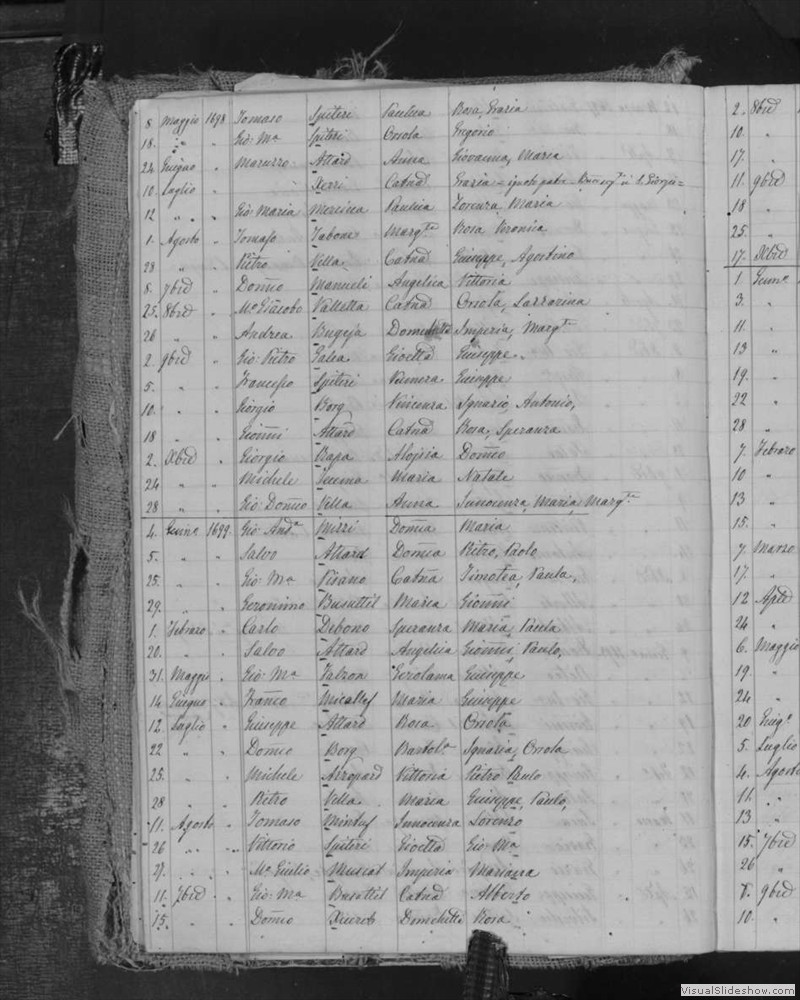 8 Maggio 1698 Tomaso Spiteri Paulica Rosa, Grazia
18. " " Gio: Ma Spiteri Orsola Gregorio
24 Giugno " Maruzzo Attard Anna Giovanna, Maria
10 Luglio " Xerri Catna Grazia
12 " " Gio Maria Mercieca Paulica Lorenza, Maria
1. Agosto " Tomaso Tabone Margta Rosa Veronica
28 " " Pietro Vella Catna Giuseppe, Agostino
8. 7bre " Domco Manueli Angelica Vittoria
25. 8bre " Mo Giacobo Valletta Catna Orsola, Lazzarina
26 " " Andrea Bugeja Domichella Imperia, Margta
2. 9bre " Gio: Pietro Galea Gioetta Giuseppe.
5. " " Francesco Spiteri Giuseppe
10. " " Giorgio Borg Vincenza Ignazio, Antonio,
18 " " Gionni Attard Catna Rosa, Speranza
2. Xbre " Giorgio Rapa Aloisia Domco
24 " " Michele Maria Natale
28 " " Gio: Domco Vella Anna Innocenza, Maria, Margta
4. Genn. 1699. Gio: Anda Mizzi Domca Maria
5. " " Salvo Attard Domca Pietro, Paolo
25. " " Gio: Ma Pisano Catna Timotea, Paula,
29. " " Geronimo Busuttil Maria Gionni
1. Febraro " Carlo Debono Speranza Maria, Paula
20. " " Salvo Attard Angelica Gionni, Paulo,
31. Maggio " Gio: Ma Falzon Gerolama Giuseppe
14 Giugno " Franco Micallef Maria Giuseppe
12 Luglio " Giuseppe Attard Rosa Orsola
22 " " Domco Borg Bartola Ignazia, Orsola
25. " " Michele Azzopard Vittoria Pietro Paulo
28 " " Pietro Vella Maria Giuseppe, Paulo,
11. Agosto " Tomaso Mintuf Innocenza Lorenzo
26 " " Vittorio Spiteri Gioetta Gio: Ma
27. " " Mo Giulio Muscat Imperia Mariana
11. 7bre " Gio: Ma Busuttil Catna Alberto
15. " " Domco Xicereb Domichella Rosa
2. 8bre
10. "
17. "
11. 9bre
18 "
25. "
17. Xbre
1. Genno
3. "
11. "
13 "
19. "
22 "
28 "
7. Febraro
10 "
13 "
15. "
7. Marzo
17. "
12 Aple
24 "
6. Maggio
19. "
24 "
20 Giugo
5. Luglio
4. Agosto
11. "
13 "
15. 7bre
26 "
8. 9bre
10. "
VisualSlideshow.com